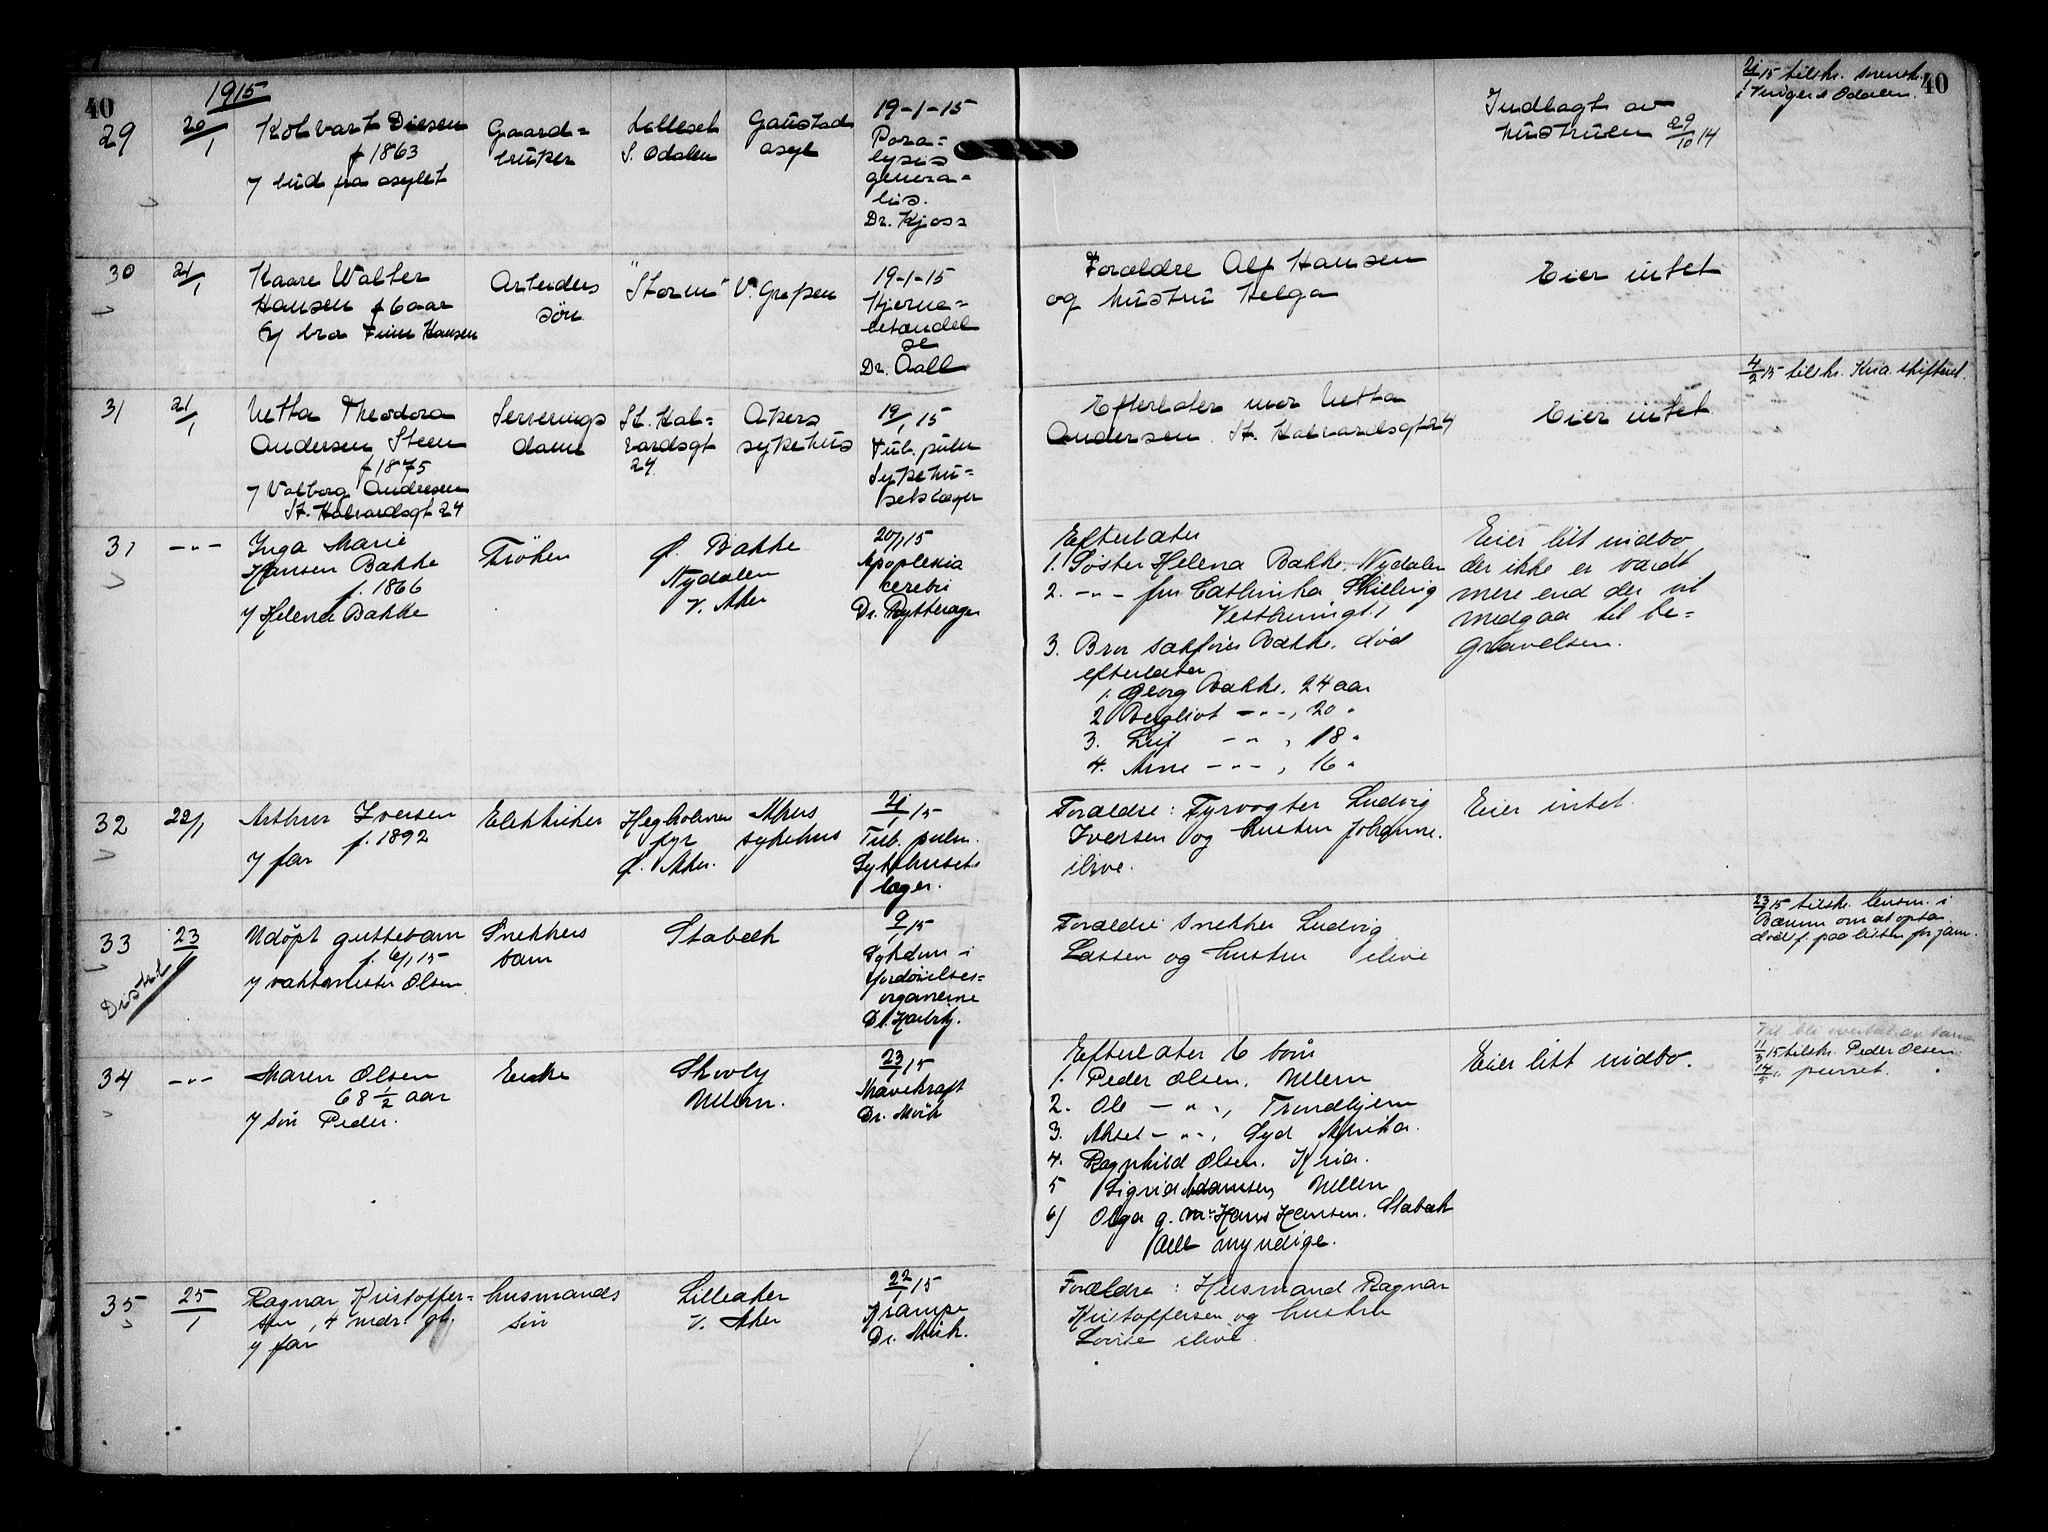 40
1915
40
21/1 15 tilskr. sorensk.
i Vinger & Odalen.
29
20/1
Kolvart Diesen
f 1863
7 bud fra asylet
Gaard=
bruker
Lilleset
S. Odalen
Gaustad
asyl
19-1-15
Para=
lysis
genera=
lis.
Dr. Kjoss
Indlagt av
hustruen 29/10 14
30
21/1
Kaare Walter
Hansen f 6 aar
7 bro Finn Hansen
Arbeiders
søn
"Storm"
V. Grefsen
19-1-15
Hjerne=
betændel
se
Dr. Aall
Forældre Alf Hansen
og hustru Helga
Eier intet
31
21/1
Netta Theodora
Andersen Steen
f 1875
7 Valborg Andresen
St. Halvardsgt 24
Serverings
dame
St. Hal=
vardsgt
24
Akers
sykehus
19/1 15
Tub. pulm
Sykehu=
sets læger
Efterlater mor Netta
Andersen. St. Halvardsgt 24
Eier intet
4/2 15 tilskr. Kria skifteret.
31
-"-
Inga Marie
Hansen Bakke
f. 1866
7 Helena Bakke
Frøken
Ø. Bakke
Nydalen
V. Aker
20/1 15
Apoplexia
cerebri
Dr. Rytterager
Efterlater
1. Søster Helena Bakke, Nydalen
2. -"- fru Cathinka Skilling
3. Bror sakfører Bakke, død
efterlater
1. Georg Bakke, 24 aar
2. Bergliot -"-, 20 "
3. Leif -"-, 18 "
4. Arne -"-, 16 "
Eier litt indbo
der ikke er værdt
mere end der vil
medgaa til be=
gravelsen.
32
22/1
Arthur Iversen
f. 1892
7 far
Elektriker
Hegholmen
fyr
Ø. Aker.
Akers
sykehus
21/1 15
Tub. pulm.
Sykehusets
læger.
Forældre: Fyrvogter Ludvig
Iversen og hustru Johanne.
ilive.
Eier intet.
33
23/1
Distrikt
Udøpt guttebarn
f. 6/1 15
7 vaktmester Olsen
Snekkers
barn
Stabæk
9/1 15
Sykdom i
fordøielses=
organerne
Forældre Snekker Ludvig
Lassen og hustru ilive
23/1 15 tilskr. lensm. i
Bærum om at opta
dødsf. paa listen for jan.
34
-"-
Maren Olsen
68 1/2 aar
7 søn Peder.
Enke
Skovly
Ullern.
23/1 15
Mavekræft
Dr. Mørk
Efterlater 6 børn
1. Peder Olsen, Ullern
2. Ole -"-, Trondhjem
3. Aksel -"-, Syd Afrika.
4. Ragnhild Olsen, Kria.
5 Sigrid Adamsen, Ullern
6) Olga g. m. Hans Hansen, Stabæk
Alle myndige.
Eier litt indbo.
11/3 15 tilskr. Peder Olsen.
14/5 " purret.
35
25/1
Ragnar Kristoffer=
sen, 4 mdr. gl.
7 far
husmands
søn
Lilleaker
V. Aker
22/1 15
Krampe
Dr. Mørk.
Forældre: Husmand Ragnar
Kristoffersen og hustru
Lovise ilive.